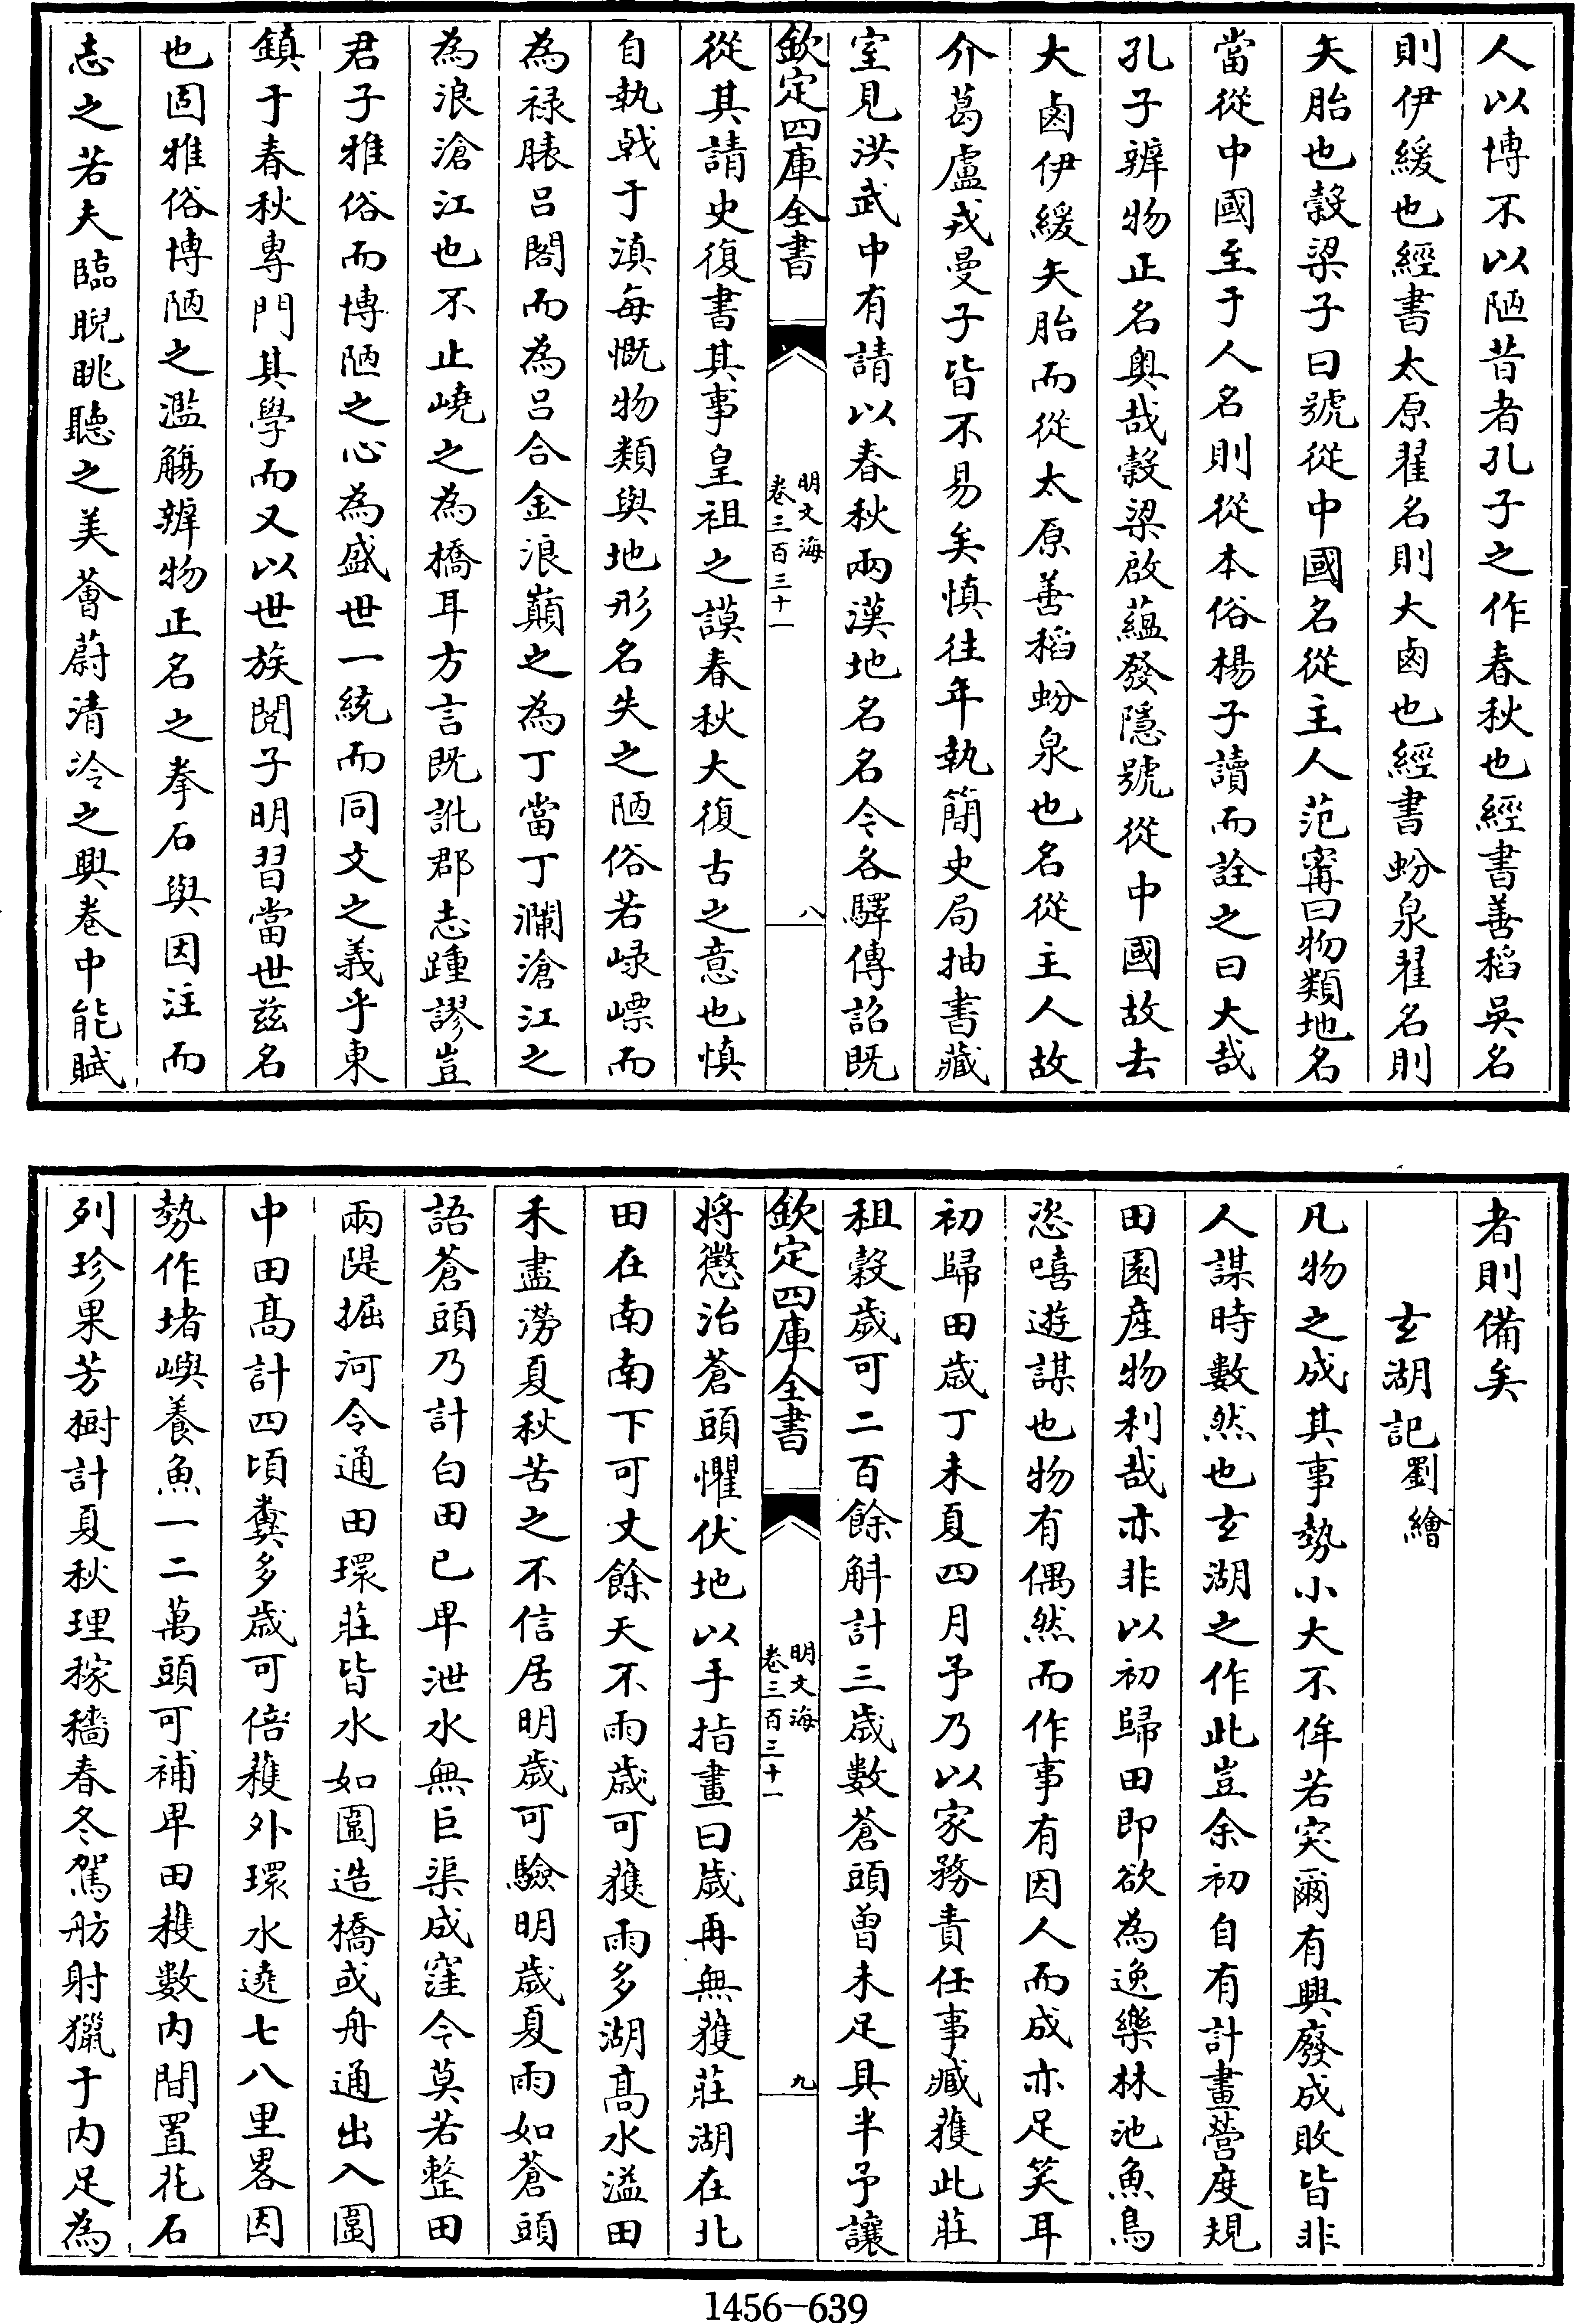 人以博不以陋昔者孔子之作春秋也經書善稻吳名
則伊緩也經書太原翟名則大鹵也經書蚡泉翟名則
矢胎也穀梁子曰號從中國名從主人范甯曰物類地名
當從中國至于人名則從本俗楊子讀而詮之曰大哉
孔子辨物正名奧哉穀梁啟蘊發隱號從中國故去
大鹵伊緩矢胎而從太原善稻蚡泉也名從主人故
介葛盧戎曼子皆不易矣慎往年執簡史局抽書藏
室見洪武中有請以春秋兩漢地名名今各驛傳詔既
欽定四庫全書
明文海
卷三百三十一
八
從其請史復書其事皇祖之謨春秋大復古之意也慎
自執戟于滇每慨物類與地形名失之陋俗若崚嶛而
為祿脿呂閣而為呂合金浪巔之為丁當丁瀾滄江之
為浪滄江也不止嶢之為橋耳方言既訛郡志踵謬豈
君子雅俗而博陋之心為盛世一統而同文之義乎東
鎮于春秋專門其學而又以世族閱子明習當世茲名
也固雅俗博陋之濫觴辨物正名之拳石與因注而
志之若夫臨睨眺聽之美薈蔚清泠之興卷中能賦
者則備矣
玄湖記劉繪
凡物之成其事勢小大不侔若突爾有興廢成敗皆非
人謀時數然也玄湖之作此豈余初自有計畫營度規
田園產物利哉亦非以初歸田即欲為逸樂林池魚鳥
恣嘻遊謀也物有偶然而作事有因人而成亦足笑耳
初歸田歲丁未夏四月予乃以家務責任事臧獲此莊
租穀歲可二百餘斛計三歲數蒼頭曾未足具半予讓
欽定四庫全書
明文海
卷三百三十一
九
將懲治蒼頭懼伏地以手指畫曰歲再無穫莊湖在北
田在南南下可丈餘天不雨歲可穫雨多湖高水溢田
禾盡澇夏秋苦之不信居明歲可驗明歲夏雨如蒼頭
語蒼頭乃計白田已卑泄水無巨渠成窪今莫若整田
兩隄掘河令通田環莊皆水如圜造橋或舟通出入圜
中田高計四頃糞多歲可倍穫外環水遶七八里畧因
勢作堵嶼養魚一二萬頭可補卑田穫數內間置花石
列珍果芳樹計夏秋理稼穡春冬駕舫射獵于內足為
1456-639